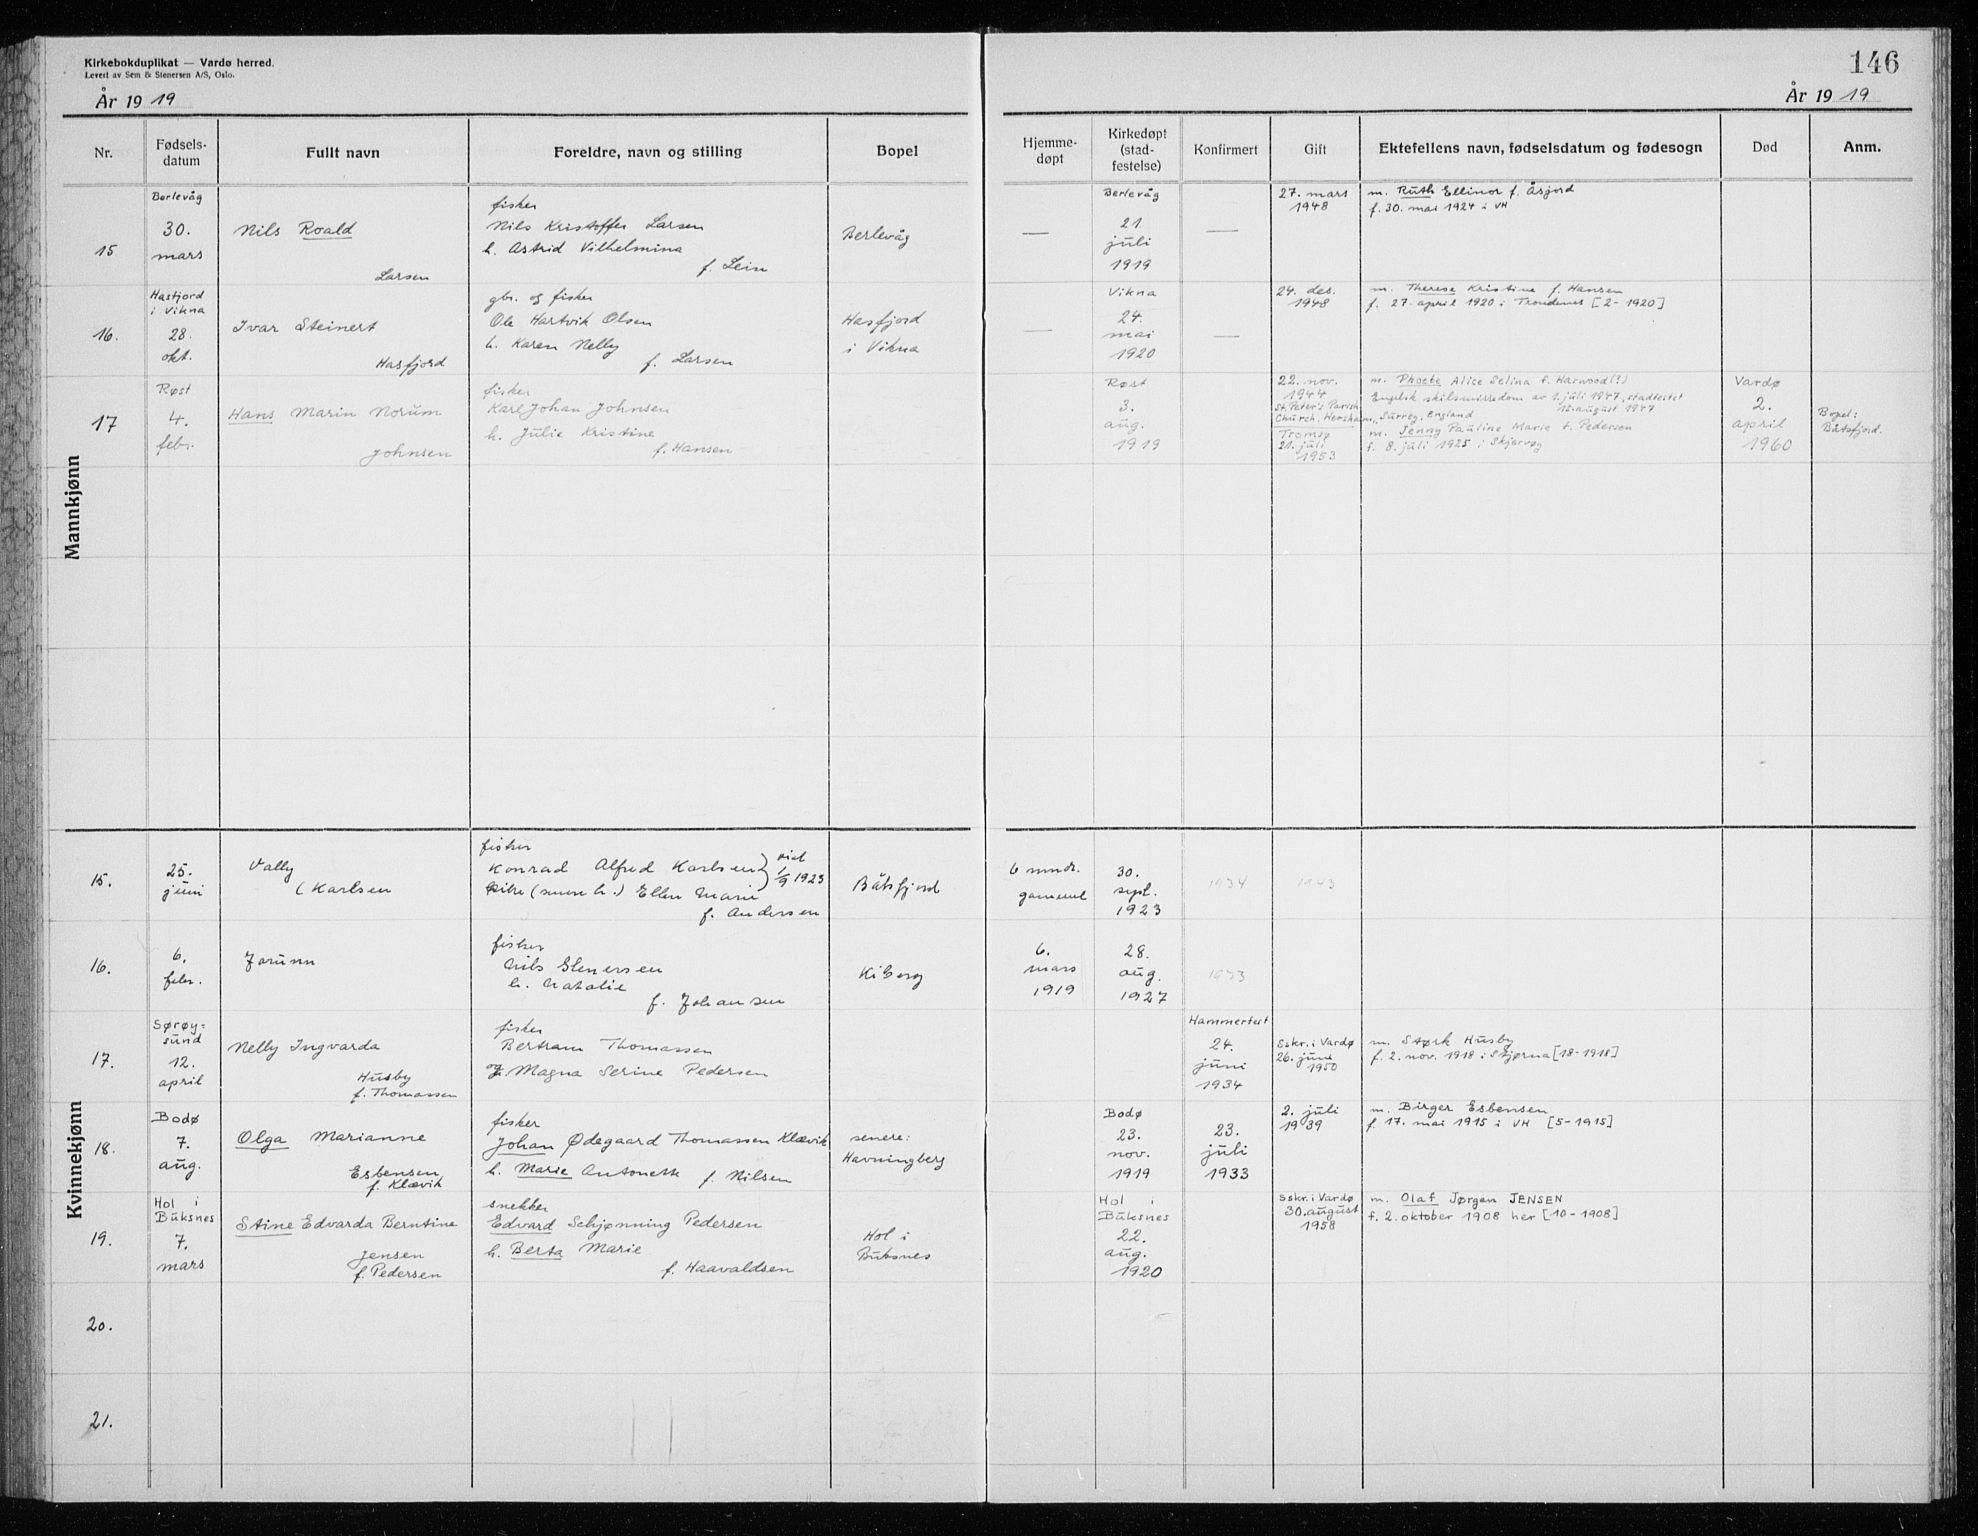 Kirkebokduplikat — Vardø herred.
Levert av Sem & Stenersen A/S, Oslo.
146
År 1919
År 1919
Nr.
Fødsels-
datum
Fullt navn
Foreldre, navn og stilling
Bopel
Hjemme-
døpt
Kirkedøpt
(stad-
festelse)
Konfirmert
Gift
Ektefellens navn, fødselsdatum og fødesogn
Død
Anm.
Mannkjønn
15
Berlevåg
30.
mars
Nils Roald
Larsen
fisker
Nils Kristoffer Larsen
h. Astrid Vilhelmina
f. Lein
Berlevåg
—
Berlevåg
21
juli
1919
—
27. mars
1948
m. Ruth Ellinor f. Åsjord
f. 30. mai 1924 i VH
16.
Hasfjord
i Vikna
28.
okt.
Ivar Steinert
Hasfjord
gbr. og fisker
Ole Hartvik Olsen
h. Karen Nelly
f. Larsen
Hasfjord
i Vikna
—
Vikna
24.
mai
1920
—
24. des.
1948
m. Therese Kristine f. Hansen
f. 27. april 1920 i Trondenes [2-1920]
17
Røst
4.
febr.
Hans Marin Norum
Johnsen
fisker
Karl Johan Johnsen
h. Julie Kristine
f. Hansen
Røst
3.
aug.
1919
22. nov.
1944
St. Peter's Parish
Church, Hersham, Surrey, England
Tromsø
21. juli
1953
m. Phoebe Alice Selina f. Harwood(?)
Engelsk skilsmissedom av 1. juli 1947, stadfestet
15. august 1947
m. Jenny Pauline Marie f. Pedersen
f. 8. juli 1925 i Skjervøy
Vardø
2.
april
1960
Bopel:
Båtsfjord.
Kvinnekjønn
15.
25.
juni
Vally
(Karlsen
fisker
Konrad Alfred Karlsen } viet
pike (senere h.) Ellen Marie 1/9 1923
f. Andersen
Båtsfjord
6 mndr.
gammel
30.
sept.
1923
1934
1943
16.
6.
febr.
Jorunn
fisker
Nils Stenersen
h. Natalie
f. Johansen
Kiberg
6.
mars
1919
28.
aug.
1927
1933
17.
Sørøy=
sund
12.
april
Nelly Ingvarda
Husby
f. Thomassen
fisker
Bertram Thomassen
og Magna Serine Pedersen
Hammerfest
24.
juni
1934
Sskr. i Vardø
26. juni
1950
m. Størk Husby
f. 2. nov. 1918 i Stjørna [18-1918]
18.
Bodø
7.
aug.
Olga Marianne
Esbensen
f. Klævik
fisker
Johan Ødegaard Thomassen Klævik
h. Marie Antonette f. Nilsen
senere:
Havningberg
Bodø
23.
nov.
1919
23.
juli
1933
2. juli
1939
m. Birger Esbensen
f. 17. mai 1915 i VH [5-1915]
19.
Hol i
Buksnes
7.
mars
Stine Edvarda Berntine
Jensen
f. Pedersen
snekker
Edvard Schjønning Pedersen
h. Berta Marie
f. Haavaldsen
Hol i
Buksnes
Hol i
Buksnes
22.
aug.
1920
Sskr. i Vardø
30. august
1958
m. Olaf Jørgen JENSEN
f. 2. oktober 1908 her [10-1908]
20.
21.